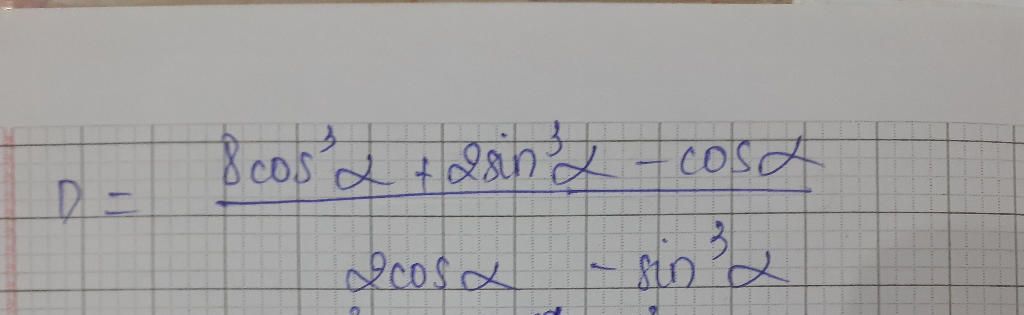 D = \frac{8cos^3α + 2sin^3α - cosα}{2cosα - sin^3α}